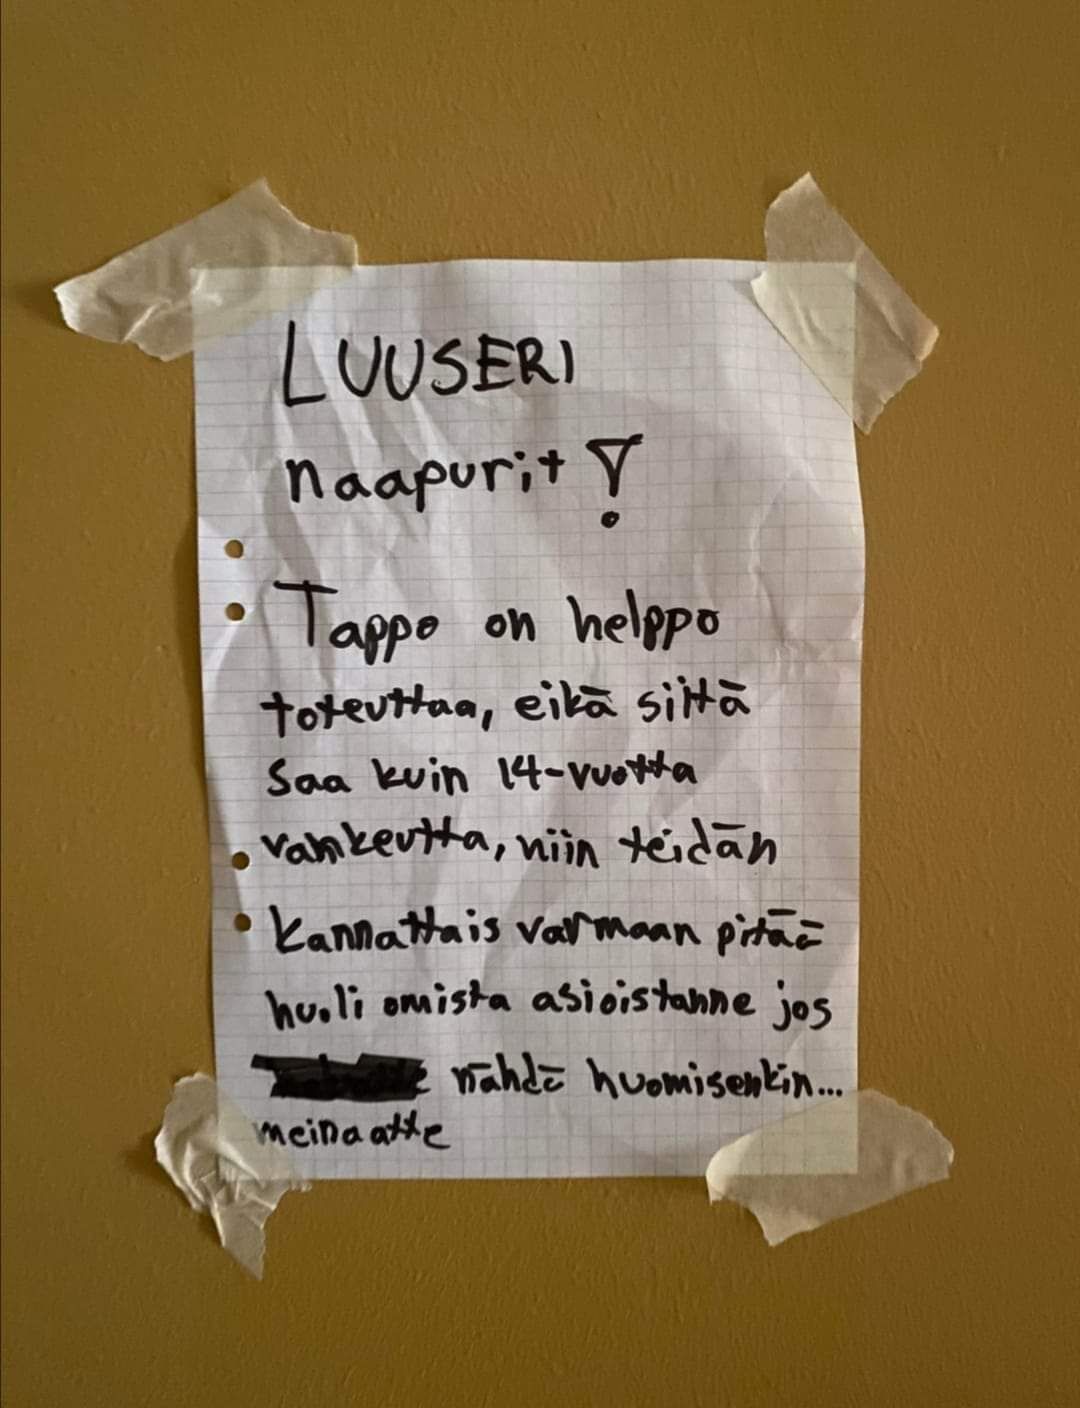 LUUSERI
naapurit!
Tappo on helppo
toteuttaa, eikä siitä
saa kuin 14-vuotta
vankeutta, niin teidän
kannattais varmaan pitää
huoli omista asioistanne jos
nähdä huomisenkin...
meinaatte